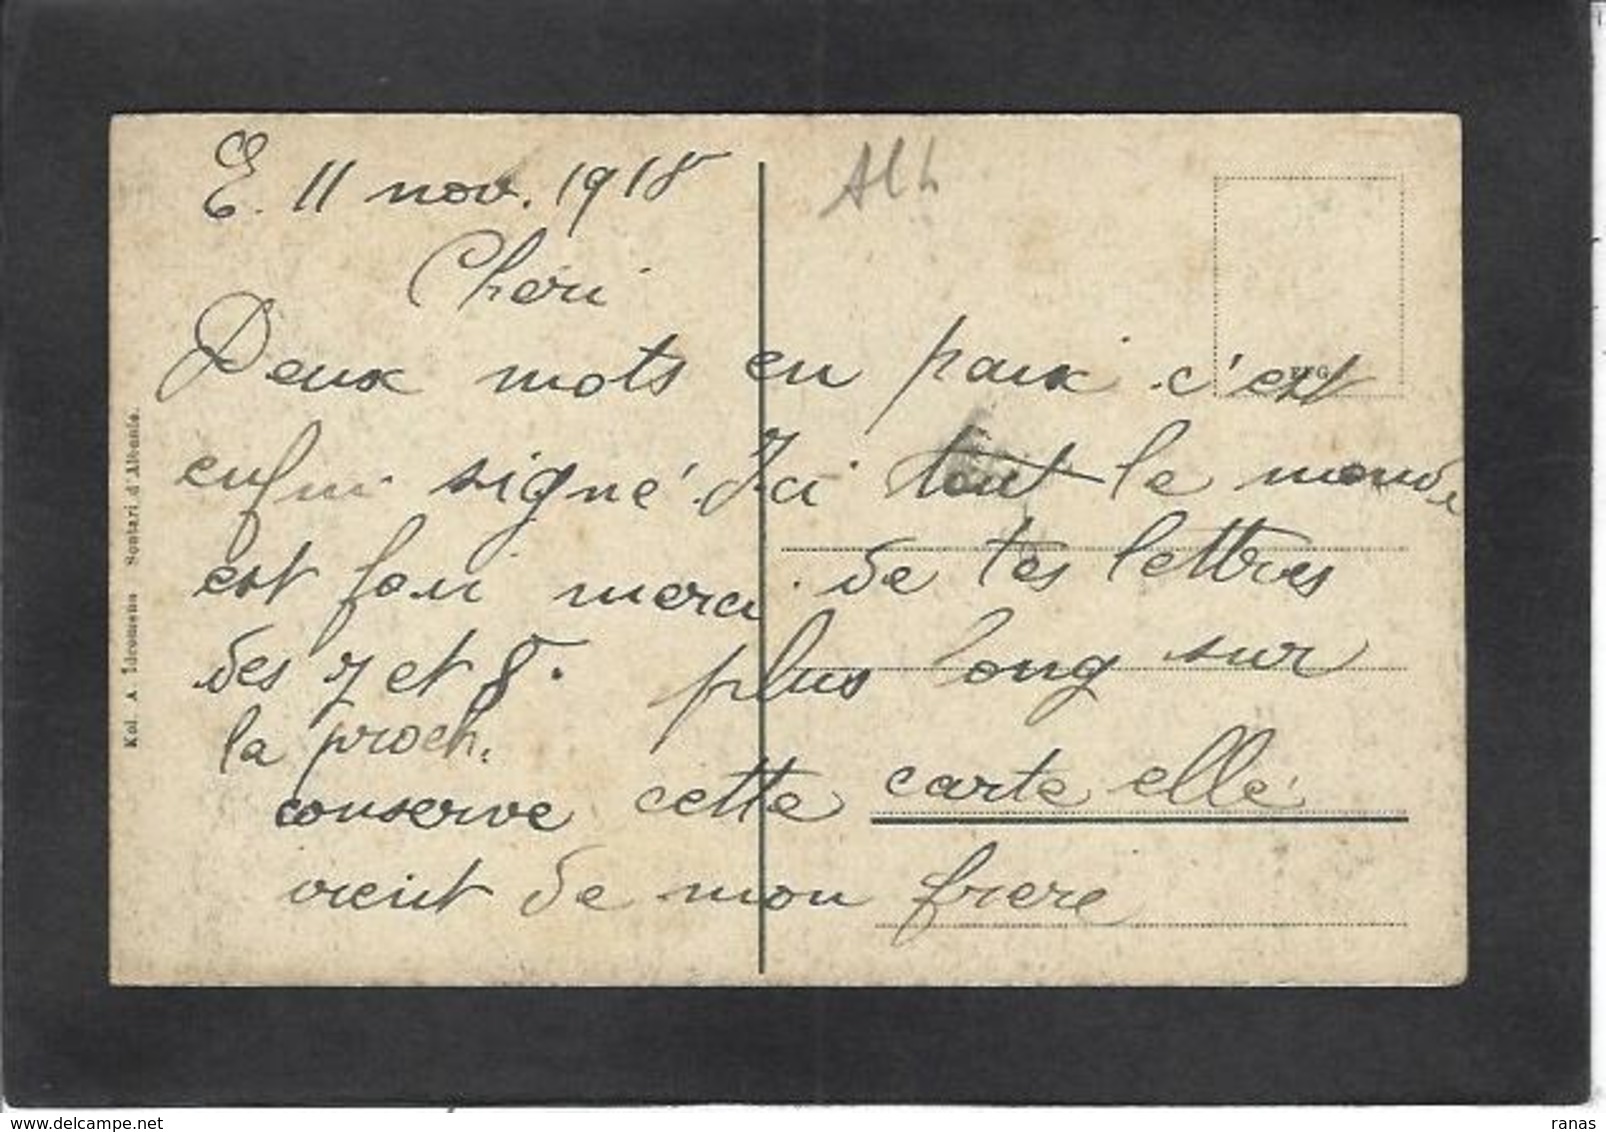 E. 11 nov. 1918
Alb
Cheri
Deux mots en paix c'est
enfin signé. Ici tout le monde
est fou merci de tes lettres
des 7 et 8. plus long sur
la proch.
conserve cette carte elle
vient de mon frere
PFG
Kol. A. Idromenu Scutari d'Albanie.
www.delcampe.net
ranas